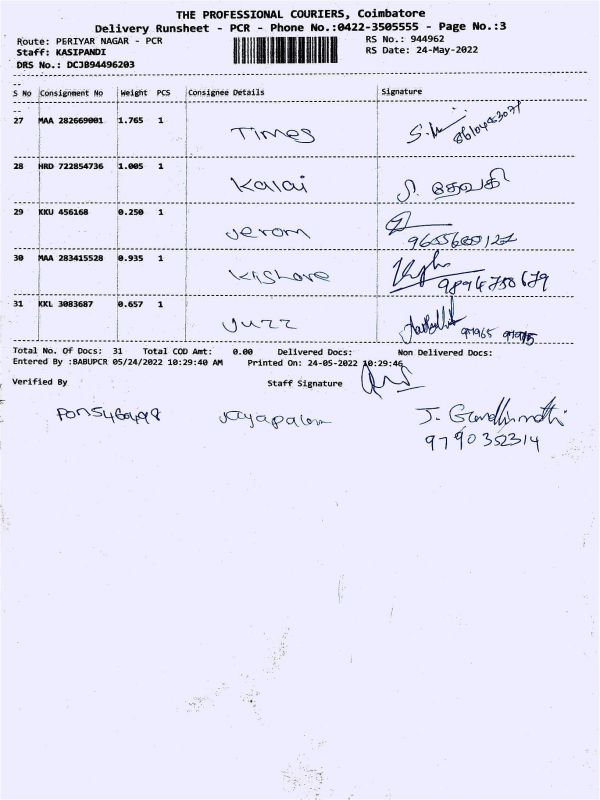 THE PROFESSIONAL COURIERS, Coimbatore
Delivery Runsheet - PCR - Phone No.:0422-3505555 - Page No.:3
Route: PERIYAR NAGAR - PCR
RS No.: 944962
Staff: KASIPANDI
RS Date: 24-May-2022
DRS No.: DCJB94496203
S No Consignment No Weight PCS Consignee Details Signature
27 MAA 282669001 1.765 1
Times
28 HRD 722854736 1.005 1
Kalai
தேவகி
29 KKU 456168 0.250 1
Jerom
30 MAA 283415528 0.935 1
Kishore
9894750679
31 KKL 3083687 0.657 1
Juzz
Total No. Of Docs: 31 Total COD Amt: 0.00 Delivered Docs: Non Delivered Docs:
Entered By :BABUPCR 05/24/2022 10:29:40 AM Printed On: 24-05-2022 10:29:46
Verified By Staff Signature
Jayapalan J. Gandhimathi
9790352314